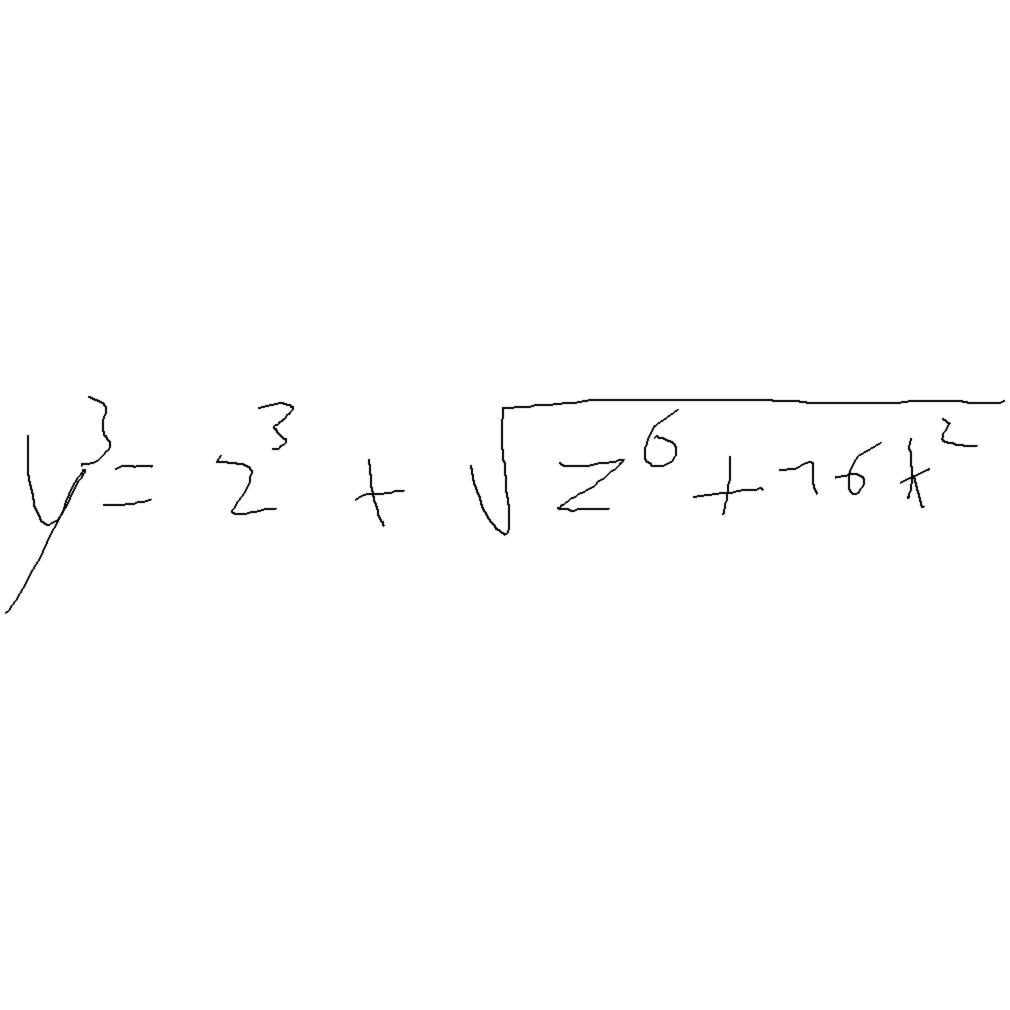 y³ = z³ + √(z⁶ + 16t²)